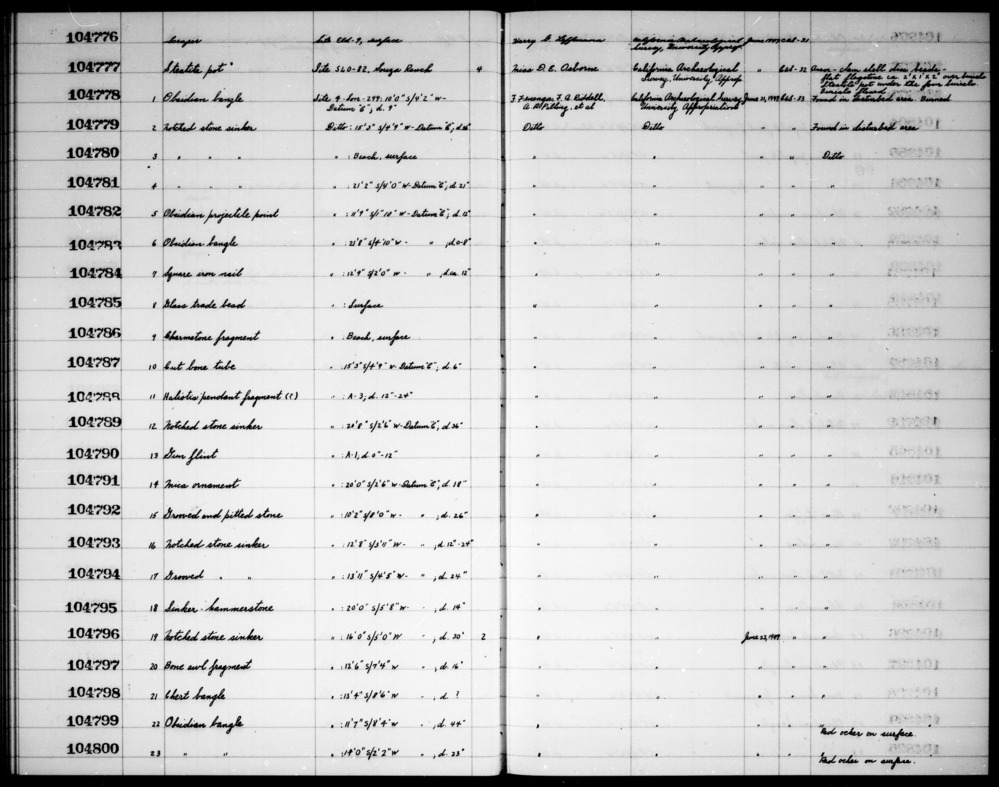 104776 Scraper Site Eld-9, surface Harry G. Hoffmann California Archaeological Survey, University Approp. June 1949 CAS-31
104777 Steatite pot Site SLO-82, Souza Ranch 4 Miss D. E. Osborne California Archaeological Survey, University Approp. CAS-32
flat flagstone ca 2'x1'x2" over burials
Steatite pot under the four burials.
104778 1 Obsidian bangle Site 4-Son-299: 10'0" S/4'2" W-Datum "C", d. 9" F. Fenenga, F. A. Riddell, A. Pilling, et al California Archaeological Survey University Appropriation June 21, 1949 CAS-33 Found in disturbed area. Burned
104779 2 Notched stone sinker Ditto: 15'3" S/4'9" W-Datum "C", d. Ditto Ditto " " Found in disturbed area
104780 3 " " " " : Beach, surface " " " " Ditto
104781 4 " " " " : 21'2" S/4'0" W-Datum "C", d. 21" " " " " "
104782 5 Obsidian projectile point " : 11'9" S/1'10" W-Datum "C", d. 12" " " " " "
104783 6 Obsidian bangle " : 21'8" S/4'10" W- " , d. 0-8" " " " " "
104784 7 Square iron nail " : 12'9" S/2'0" W- " , d. ca. 12" " " " " "
104785 8 Glass trade bead " : Surface " " " " "
104786 9 Charmstone fragment " : Beach, surface " " " " "
104787 10 Cut bone tube " : 15'3" S/4'9" W-Datum "C", d. 6" " " " " "
104788 11 Haliotis pendant fragment (?) " : A-3, d. 12"-24" " " " " "
104789 12 Notched stone sinker " : 20'8" S/2'6" W-Datum "C", d. 36" " " " " "
104790 13 Gun flint " : A-1, d. 0"-12" " " " " "
104791 14 Mica ornament " : 20'0" S/2'6" W-Datum "C", d. 18" " " " " "
104792 15 Grooved and pitted stone " : 10'2" S/8'0" W- " , d. 26" " " " " "
104793 16 Notched stone sinker " : 12'8" S/3'11" W- " , d. 12"-24" " " " " "
104794 17 Grooved " " " : 13'11" S/4'5" W- " , d. 24" " " " " "
104795 18 Sinker-hammerstone " : 20'0" S/5'8" W- " , d. 14" " " " " "
104796 19 Notched stone sinker " : 16'0" S/5'0" W " , d. 30" 2 " " June 22, 1949 " "
104797 20 Bone awl fragment " : 12'6" S/7'4" W " , d. 16" " " " " "
104798 21 Chert bangle " : 13'4" S/8'6" W " , d. ? " " " " "
104799 22 Obsidian bangle " : 11'7" S/8'4" W " , d. 44" " " " " " Red ocher on surface.
104800 23 " " " : 14'0" S/2'2" W " , d. 23" " " " " " Red ocher on surface.